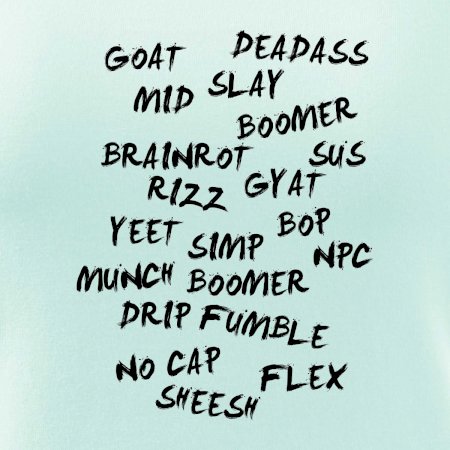 GOAT DEADASS
MID SLAY
BOOMER
BRAINROT SUS
RIZZ GYAT
YEET SIMP BOP
NPC
MUNCH BOOMER
DRIP FUMBLE
NO CAP FLEX
SHEESH